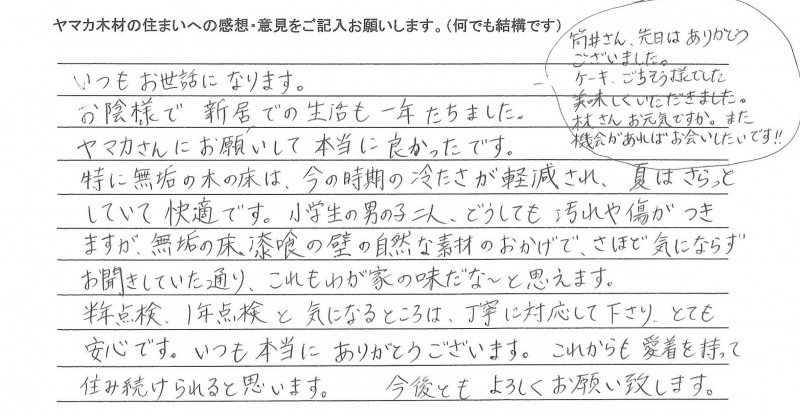 ヤマカ木材の住まいへの感想・意見をご記入お願いします。（何でも結構です）
筒井さん、先日は ありがとう
ございました。
ケーキ、ごちそう様でした
美味しくいただきました。
林さん お元気ですか。また
機会があればお会いしたいです!!
いつも お世話に なります。
お陰様で 新居での生活も 一年 たちました。
ヤマカさんに お願いして 本当に 良かったです。
特に 無垢の木の床は、今の時期の冷たさが 軽減され、夏は さらっと
していて 快適です。小学生の男の子二人、どうしても 汚れや傷が つき
ますが、無垢の床、漆喰の壁の自然な素材のおかげで、さほど気にならず
お聞きしていた通り、これもわが家の味だな〜と思えます。
半年点検、1年点検と 気になるところは、丁寧に対応して下さり、とても
安心です。いつも本当に ありがとうございます。これからも 愛着を持って
住み続けられると思います。 今後とも よろしくお願い致します。